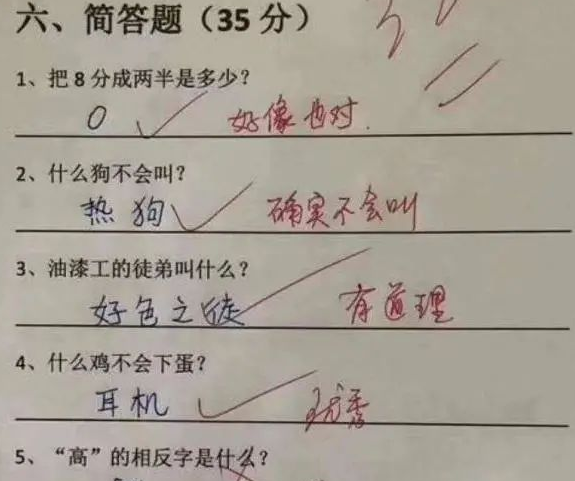 六、简答题（35 分）
1、把 8 分成两半是多少？
0 好像也对.
2、什么狗不会叫？
热狗 确实不会叫
3、油漆工的徒弟叫什么？
好色之徒 有道理
4、什么鸡不会下蛋？
耳机 优秀
5、“高”的相反字是什么？